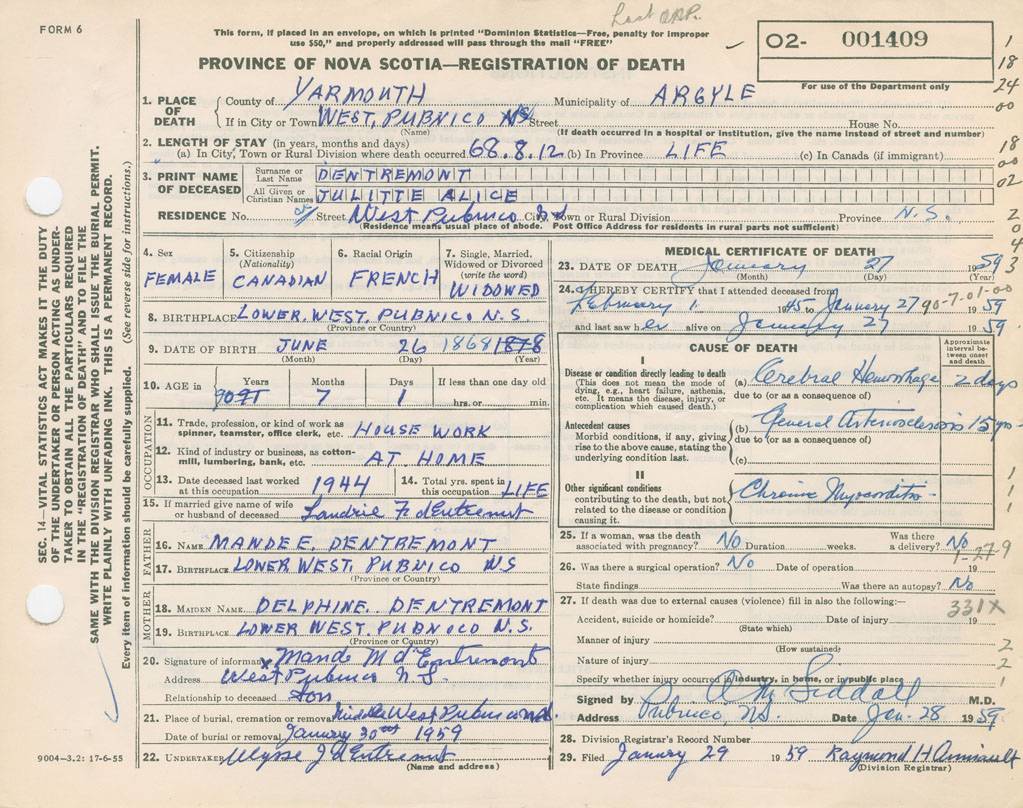 Last app.
FORM 6
This form, if placed in an envelope, on which is printed "Dominion Statistics—Free, penalty for improper
use $50," and properly addressed will pass through the mail "FREE"
O2- 001409
For use of the Department only
PROVINCE OF NOVA SCOTIA—REGISTRATION OF DEATH
1. PLACE OF DEATH County of YARMOUTH Municipality of ARGYLE
If in City or Town WEST, PUBNICO NS Street House No.
(Name) (If death occurred in a hospital or institution, give the name instead of street and number)
2. LENGTH OF STAY (in years, months and days)
(a) In City, Town or Rural Division where death occurred 68.8.12 (b) In Province LIFE (c) In Canada (if immigrant)
3. PRINT NAME OF DECEASED Surname or Last Name DENTREMONT
All Given or Christian Names JULITTE ALICE
RESIDENCE No. Street West Pubnico City, Town or Rural Division Province N.S.
(Residence means usual place of abode. Post Office Address for residents in rural parts not sufficient)
4. Sex FEMALE
5. Citizenship (Nationality) CANADIAN
6. Racial Origin FRENCH
7. Single, Married, Widowed or Divorced (write the word) WIDOWED
8. BIRTHPLACE LOWER. WEST. PUBNICO N.S.
(Province or Country)
9. DATE OF BIRTH JUNE 26 1868 1878
(Month) (Day) (Year)
10. AGE in Years Months Days If less than one day old
90 91 7 1 hrs. or min.
OCCUPATION
11. Trade, profession, or kind of work as spinner, teamster, office clerk, etc. HOUSE WORK
12. Kind of industry or business, as cotton-mill, lumbering, bank, etc. AT HOME
13. Date deceased last worked at this occupation 1944 14. Total yrs. spent in this occupation LIFE
15. If married give name of wife or husband of deceased Landrie F. d'Entremont
FATHER
16. NAME MANDE E. DENTREMONT
17. BIRTHPLACE LOWER WEST. PUBNICO NS
(Province or Country)
MOTHER
18. MAIDEN NAME DELPHINE. DENTREMONT
19. BIRTHPLACE LOWER WEST. PUBNOCO N.S.
(Province or Country)
20. Signature of informant x Mande M d'Entremont
Address West Pubnico N S.
Relationship to deceased Son
21. Place of burial, cremation or removal Middle West Pubnico N.S.
Date of burial or removal January 30 1959
22. UNDERTAKER Ulysse J d'Entremont
(Name and address)
MEDICAL CERTIFICATE OF DEATH
23. DATE OF DEATH January 27 1959
(Month) (Day) (Year)
24. I HEREBY CERTIFY that I attended deceased from
February 1 1945 to January 27 1959
90-7-01-00
and last saw her alive on January 27 1959
CAUSE OF DEATH
Approximate interval between onset and death
I
Disease or condition directly leading to death
(This does not mean the mode of dying, e.g., heart failure, asthenia, etc. It means the disease, injury, or complication which caused death.)
(a) Cerebral Hemorrhage 2 days
due to (or as a consequence of)
Antecedent causes
Morbid conditions, if any, giving rise to the above cause, stating the underlying condition last.
(b) General Arteriosclerosis 15 yrs
due to (or as a consequence of)
(c)
II
Other significant conditions
contributing to the death, but not related to the disease or condition causing it.
Chronic Myocarditis
25. If a woman, was the death associated with pregnancy? No Duration weeks. Was there a delivery? No
1-27-9
26. Was there a surgical operation? No Date of operation 19
State findings Was there an autopsy? No
27. If death was due to external causes (violence) fill in also the following:—
331X
Accident, suicide or homicide? Date of injury 19
(State which)
Manner of injury
(How sustained)
Nature of injury
Specify whether injury occurred in industry, in home, or in public place
Signed by A M Siddall M.D.
Address Pubnico, NS. Date Jan. 28 1959
28. Division Registrar's Record Number
29. Filed January 29 1959 Raymond H Amirault
(Division Registrar)
1
18
24
00
18
00
02
2
0
4
3
1
1
1
2
2
1
SEC. 14—VITAL STATISTICS ACT MAKES IT THE DUTY
OF THE UNDERTAKER OR PERSON ACTING AS UNDER-
TAKER TO OBTAIN ALL THE PARTICULARS REQUIRED
IN THE "REGISTRATION OF DEATH" AND TO FILE THE
SAME WITH THE DIVISION REGISTRAR WHO SHALL ISSUE THE BURIAL PERMIT.
WRITE PLAINLY WITH UNFADING INK. THIS IS A PERMANENT RECORD.
Every item of information should be carefully supplied. (See reverse side for instructions.)
9004—3.2: 17-6-55